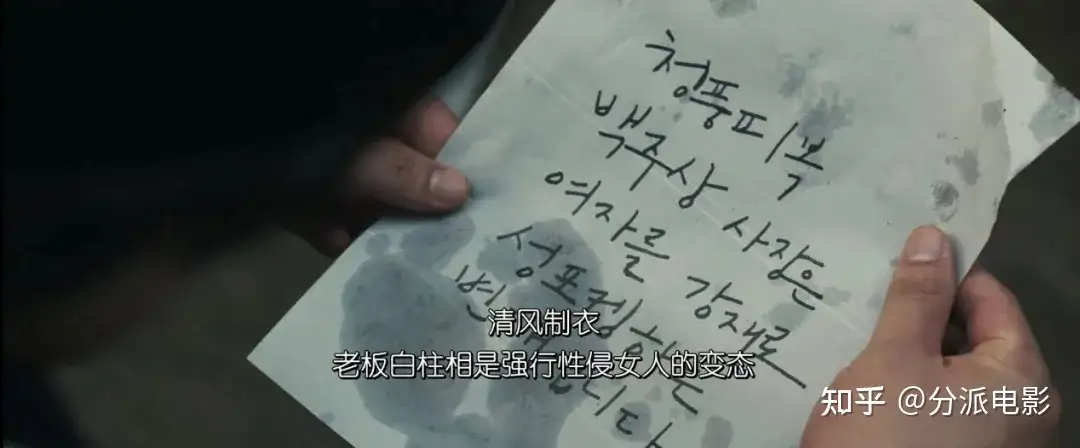 청풍피복
백주상 사장은
여자를 강재로
성포행하는
변태입니다
清风制衣
老板白柱相是强行性侵女人的变态
知乎 @分派电影